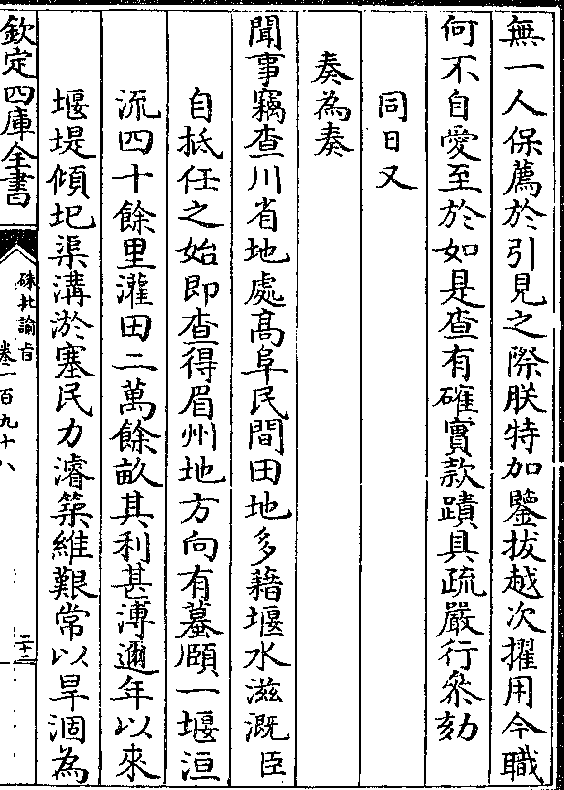 無一人保薦於引見之際朕特加鑒拔越次擢用今職
何不自愛至於如是查有確實款蹟具疏嚴行叅劾
同日又
奏為奏
聞事竊查川省地處髙阜民間田地多藉堰水滋溉臣
自抵任之始即查得眉州地方向有蟇頥一堰洹
流四十餘里灌田二萬餘畝其利甚溥邇年以來
堰堤傾圮渠溝淤塞民力濬築維艱常以旱涸為
欽定四庫全書
硃批諭旨
卷二百九十八
二十三